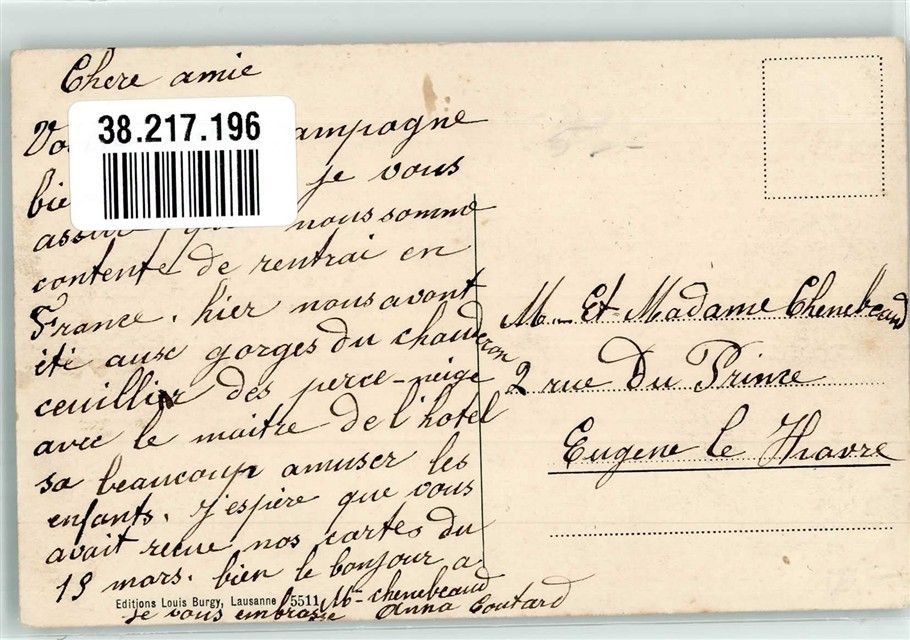 Chere amie
38.217.196
ampagne
je vous
nous somme
contente de rentrai en
France. hier nous avont
été aux gorges du chaudron
ceuillir des perce-neige
avec le maitre de l'hotel
sa beaucoup amuser les
enfants. j'espère que vous
avait recue nos cartes du
19 mars. bien le bonjour a
Mr chenebeaud
je vous embrasse Anna Coutard
Editions Louis Burgy, Lausanne 5511
M. Et Madame Chenebeaud
2 rue Du Prince
Eugene le Havre